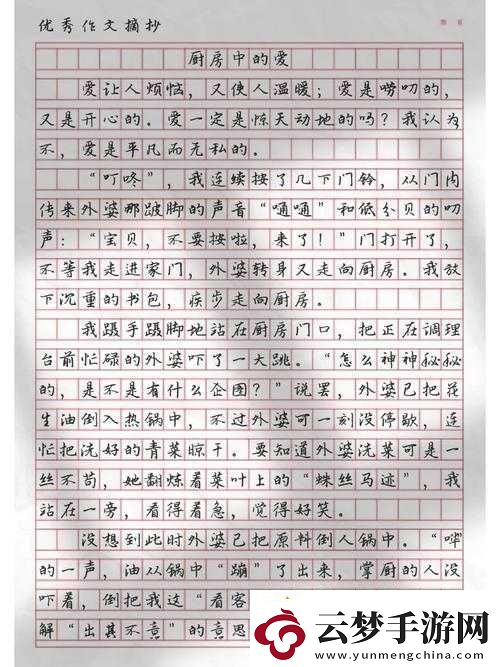 优秀作文摘抄
厨房中的爱
爱让人烦恼，又使人温暖；爱是唠叨的，
又是开心的。爱一定是惊天动地的吗？我认为
不，爱是平凡而无私的。
“叮咚”，我连续按了几下门铃，从门内
传来外婆那跛脚的声音“通通”和低分贝的叨
声：“宝贝，不要按啦，来了！”门打开了，
不等我走进家门，外婆转身又走向厨房。我放
下沉重的书包，疾步走向厨房。
我蹑手蹑脚地站在厨房门口，把正在调理
台前忙碌的外婆吓了一大跳。“怎么神神秘秘
的，是不是有什么企图？”说罢，外婆已把花
生油倒入热锅中，不过外婆可一刻没停歇，连
忙把洗好的青菜晾干。要知道外婆洗菜可是一
丝不苟，她翻炼着菜叶上的“蛛丝马迹”，我
站在一旁，看得着急，觉得好笑。
没想到此时外婆已把原料倒人锅中。“哗”
的一声，油从锅中“蹦”了出来，掌厨的人没
吓着，倒把我这“看客
解“出其不意”的意思
云梦手游网
www.yunmengchina.com